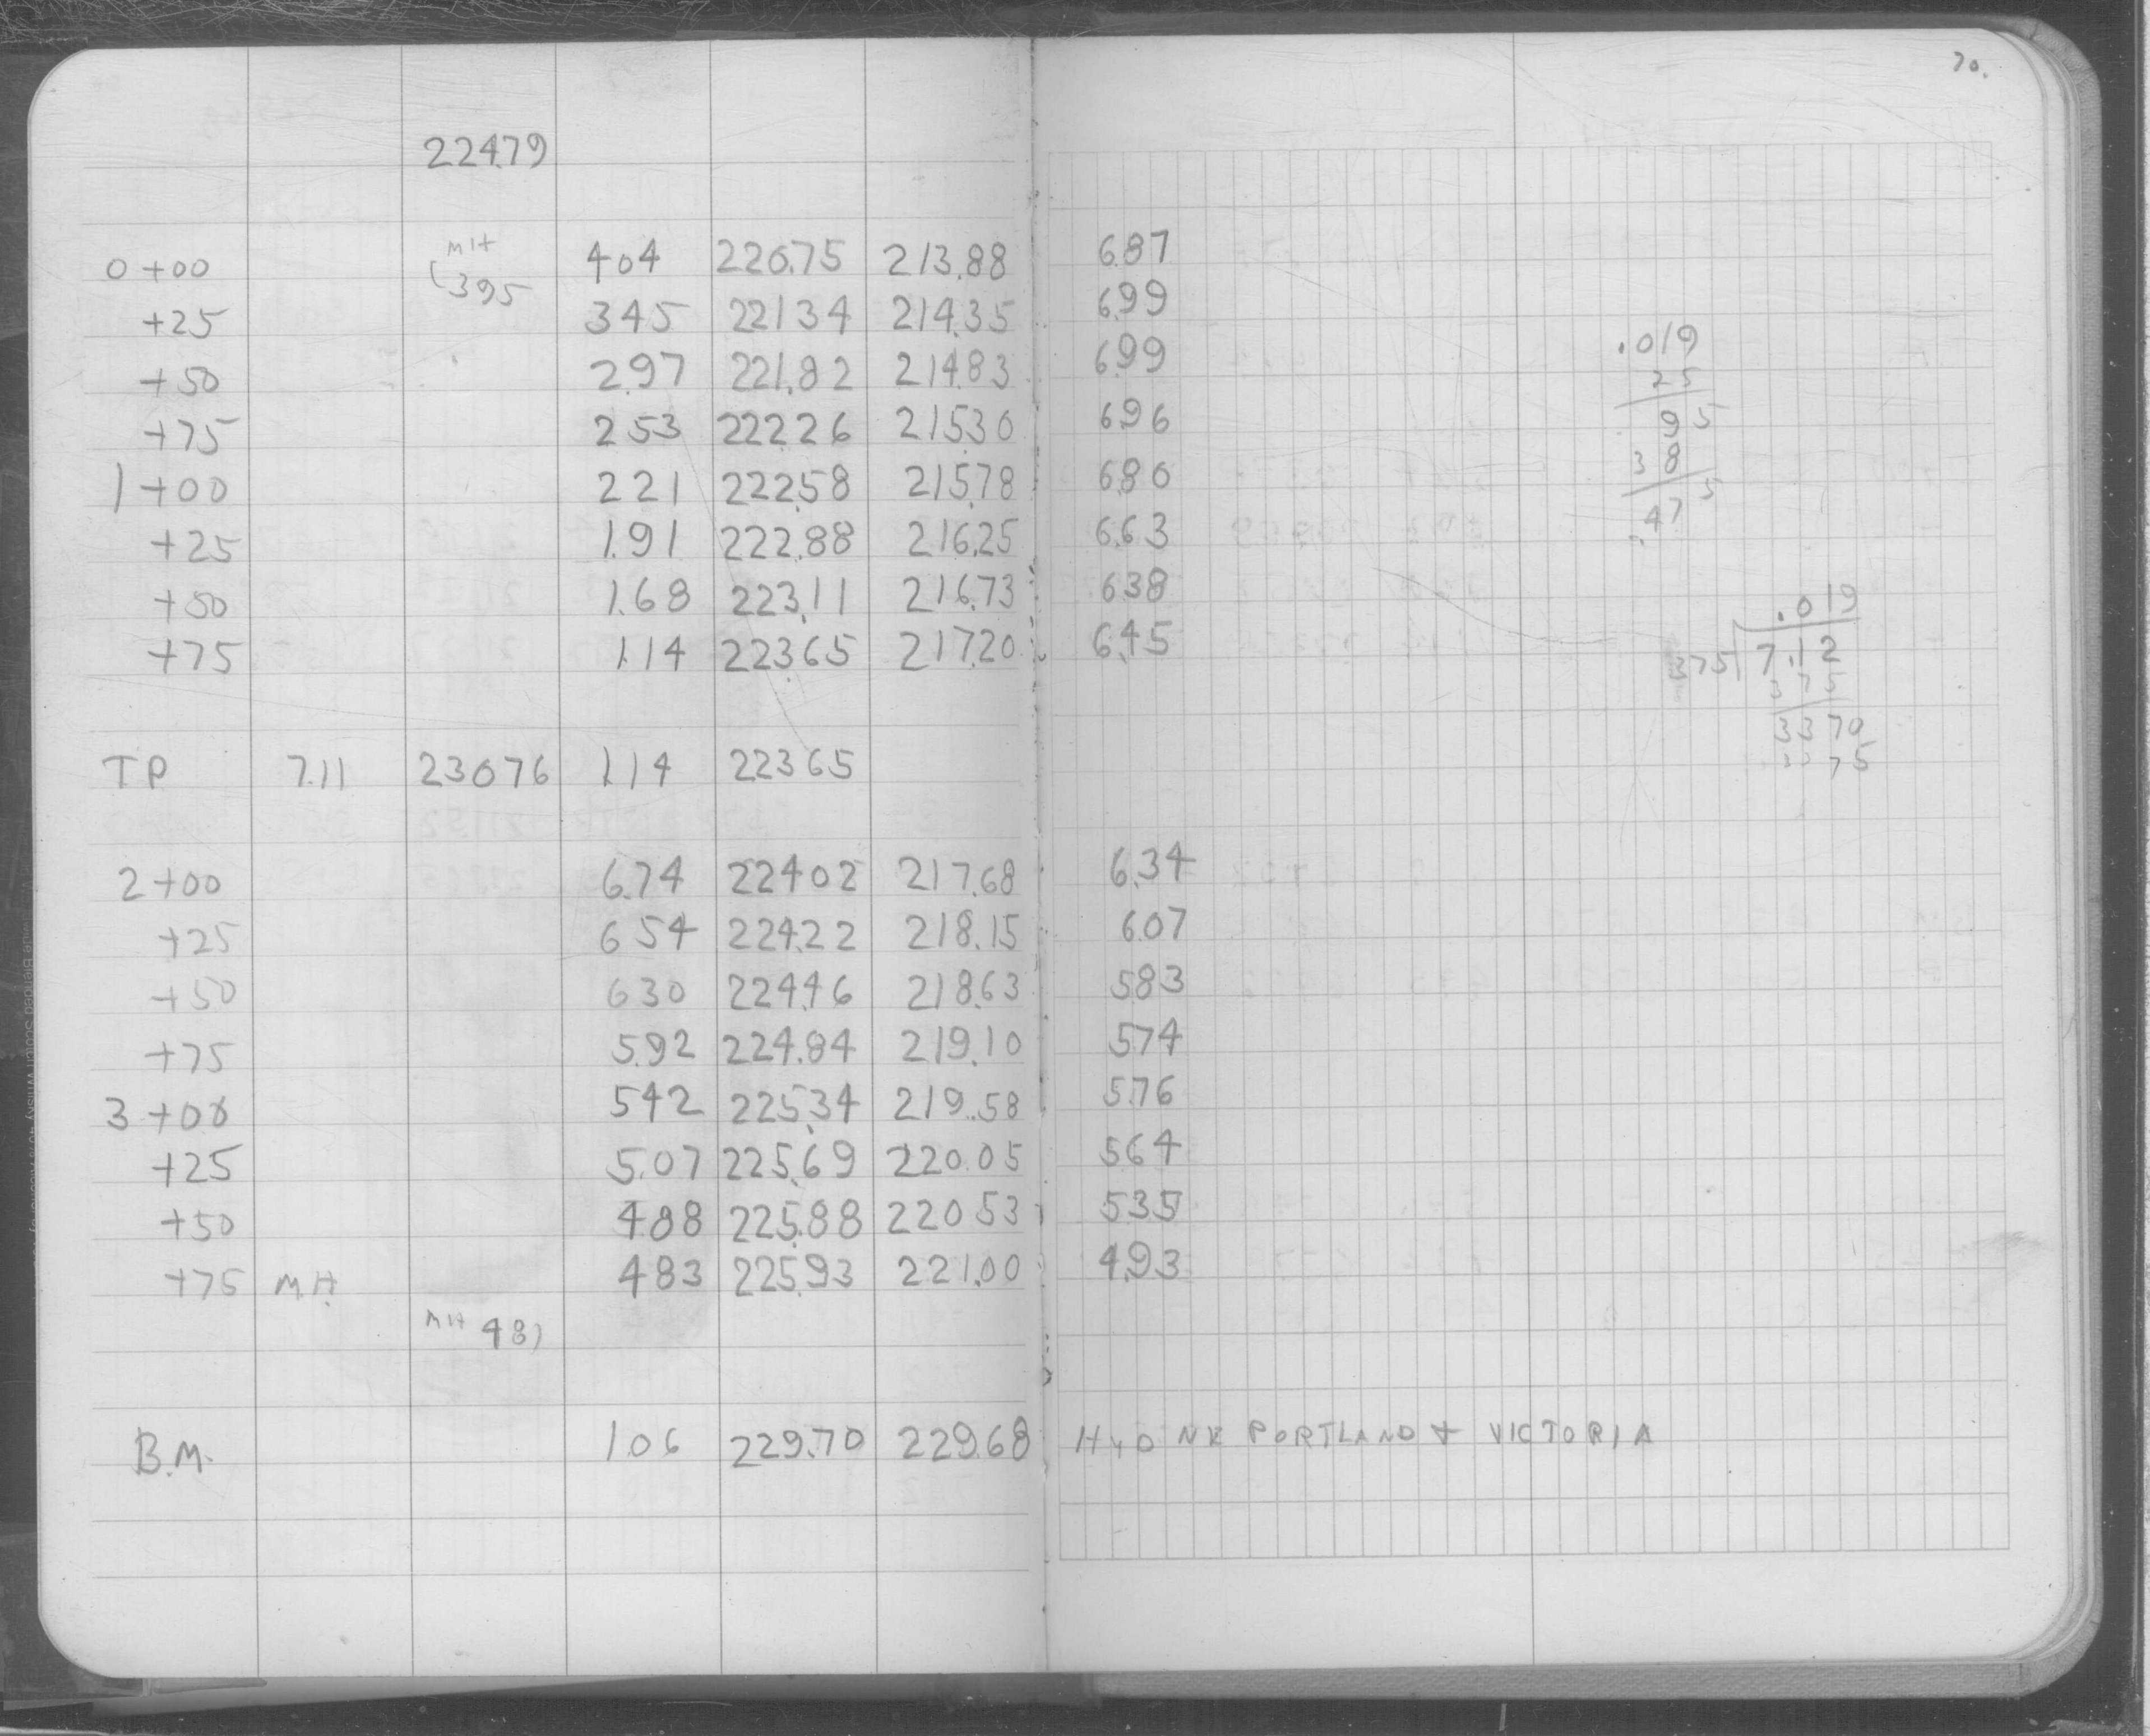 70.
224.79
0+00 MH (395 404 220.75 213.88 6.87
+25 345 221 34 214.35 6.99
+50 2.97 221.82 214.83 6.99
+75 2 53 222 26 215.30 6.96
1+00 2 21 222.58 215.78 6.80
+25 1.91 222.88 216.25 6.63
+50 1.68 223.11 216.73 6.38
+75 1.14 223.65 217.20 6.45
TP 7.11 230 76 1.14 223 65
2+00 6.74 224 02 217.68 6.34
+25 6 54 224.22 218.15 6.07
+50 6 30 224.46 218.63 5.83
+75 5.92 224.84 219.10 5.74
3+00 5 42 225.34 219.58 5.76
+25 5.07 225.69 220.05 5.64
+50 4.88 225.88 220 53 5.35
+75 M.H. 4 83 225.93 221.00 4.93
MH 48)
B.M. 1.06 229.70 229.68 HYD NE PORTLAND + VICTORIA
.019
25
9 5
3 8
.47 5
.019
375 7.12
3 7 5
3370
75